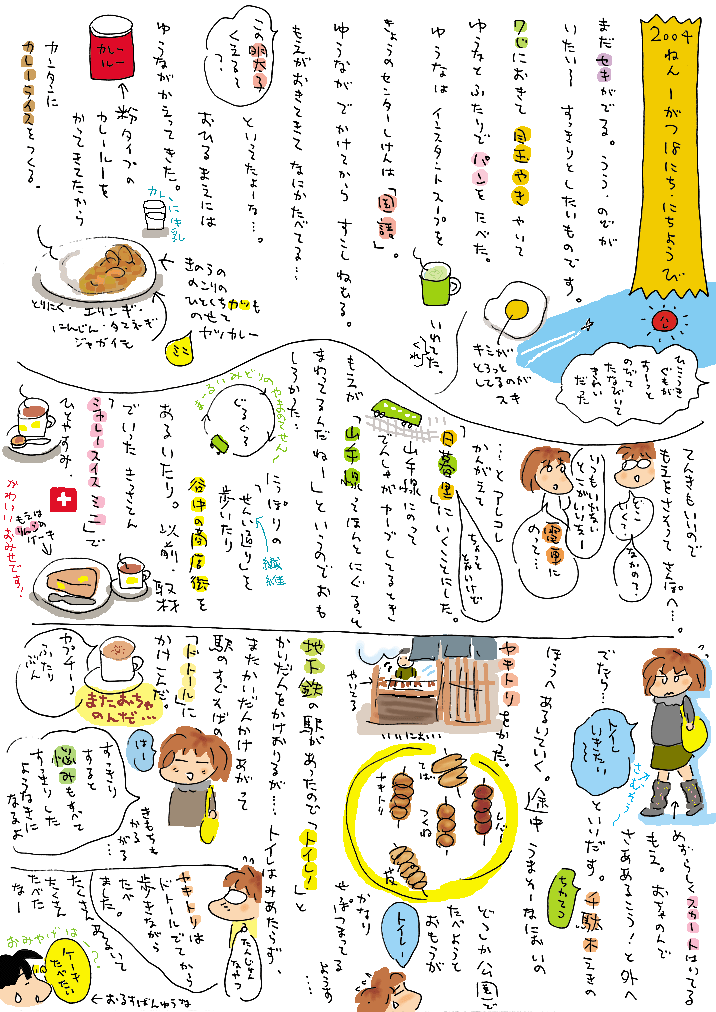 2004ねん 1がつ18にち…にちようび
まだセキがでる。うう、のどが
いたい〜 すっきりとしたいものです。
ひこうき
ぐもが
すーっと
のびて
たなびいて
きれい
だった
7じにおきて 目玉やきやいて
ゆうなとふたりでパンをたべた。
キミが
とろっと
してるのが
スキ
ゆうなは インスタントスープを
いれてた。
きょうのセンターしけんは「国語」。
ゆうながでかけてから すこしねむる。
もえがおきてきてなにかたべてる…
この明太子
くえる〜
?
といってたよーな…。
おひるまえには
ゆうながかえってきた。
カレー
ルー
粉タイプの
カレールーを
かってきてたから
カンタンに
カレーライスをつくる。
カレーに牛乳
きのうの
のこりの
ひとくちカツも
のせて
カツカレー
ミニ
とりにく・エリンギ・
にんじん・タマネギ・
ジャガイも
てんきもいいので
もえをさそって さんぽへ…。
どこ
いく?
なかので?
いつもいかない
とこがいいなー
電車に
のって…
…とアレコレ
かんがえて
「日暮里」にいくことにした。
ちょっと
とおいけど
山手線にのって
でんしゃがカーブしてるとき
もえが
「山手線ってほんとにぐるっと
まわってるんだねー」というのでおも
しろかった…
まーるいみどりのやまのてせん♪
ぐるぐる
にっぽりの
「せんい通り」を
繊維
歩いたり
谷中の商店街を
あるいたり。以前、取材
でいったきっさてん
「シャレースイスミニ」で
ひとやすみ。
もえは
りんごの
ケーキ
かわいいおみせです!
めずらしくスカートはいてる
もえ。おちゃのんで
さああるこう!と外へ
さむそう
でたら…
トイレ
いきたい
〜
といいだす。千駄木えきの
ちかてつ
ほうへあるいていく。途中うまそーなにおいの
ヤキトリをかった。
やいてる
いいにおい
レバー
てば
つくね
ヤキトリ
皮
どこか公園で
たべようと
おもうが
かなり
せっぱつまってる
ようす
…
トイレー
地下鉄の駅があったので「トイレ!」と
かいだんをかけおりるが…トイレはみあたらず、
またかいだんかけあがって
駅のすぐそばの
「ドトール」に
かけこんだ。
カプチーノ
ふたり
ぶん
またおちゃ
のんだ…
はー
きもちも
かる
がる
すっきり
すると
悩みもすべて
すっきりした
ようなきに
なるよ
たんじゅん
なやつ
ヤキトリは
ドトールでてから
歩きながら
たべ
ました。
たくさんあるいて
たくさん
たべた
なー
おみやげは〜?
ケーキ
たべたい
←おるすばんゆうな